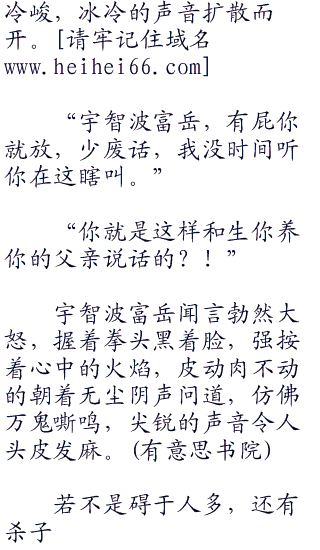 冷峻，冰冷的声音扩散而
开。[请牢记住域名
www.heihei66.com]
“宇智波富岳，有屁你
就放，少废话，我没时间听
你在这瞎叫。”
“你就是这样和生你养
你的父亲说话的？！”
宇智波富岳闻言勃然大
怒，握着拳头黑着脸，强按
着心中的火焰，皮动肉不动
的朝着无尘阴声问道，仿佛
万鬼嘶鸣，尖锐的声音令人
头皮发麻。(有意思书院)
若不是碍于人多，还有
杀子